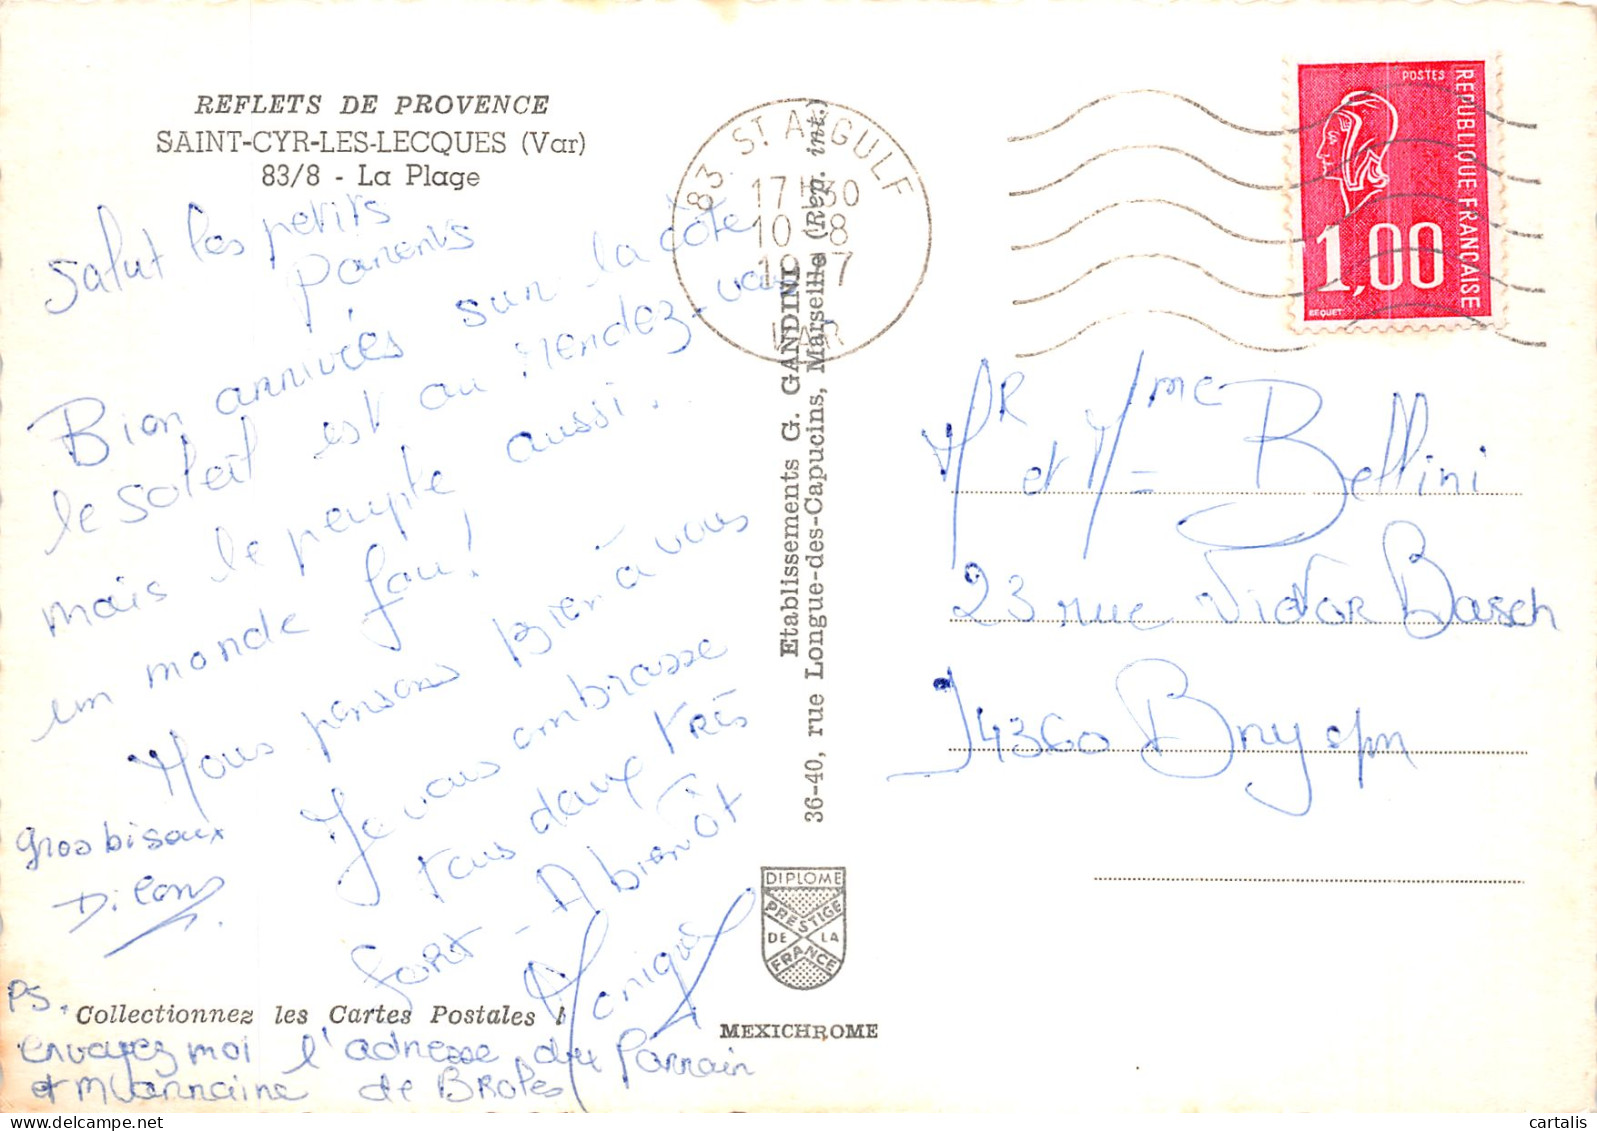 REFLETS DE PROVENCE
SAINT-CYR-LES-LECQUES (Var)
83/8 - La Plage
Salut les petits
Parents
Bien arrivés sur la côte
le soleil est au rendez-vous
mais le peuple aussi.
un monde fou!
Nous pensons Bien à vous
Je vous embrasse
tous deux très
fort - A bientôt
Monique
gros bisoux
PS.
Collectionnez les Cartes Postales !
envoyez moi l'adresse du Parrain
et Marraine de
83 ST AYGULF
17H30
10-8
VAR
Etablissements G. GANDINI
36-40, rue Longue-des-Capucins, Marseille (Rep. int.)
DIPLOME
PRESTIGE
DE LA
FRANCE
MEXICHROME
POSTES
REPUBLIQUE FRANÇAISE
1,00
BEQUET
Mr et Mme Bellini
23 rue Victor Basch
94360 Bry s/m
cartalis
delcampe.net